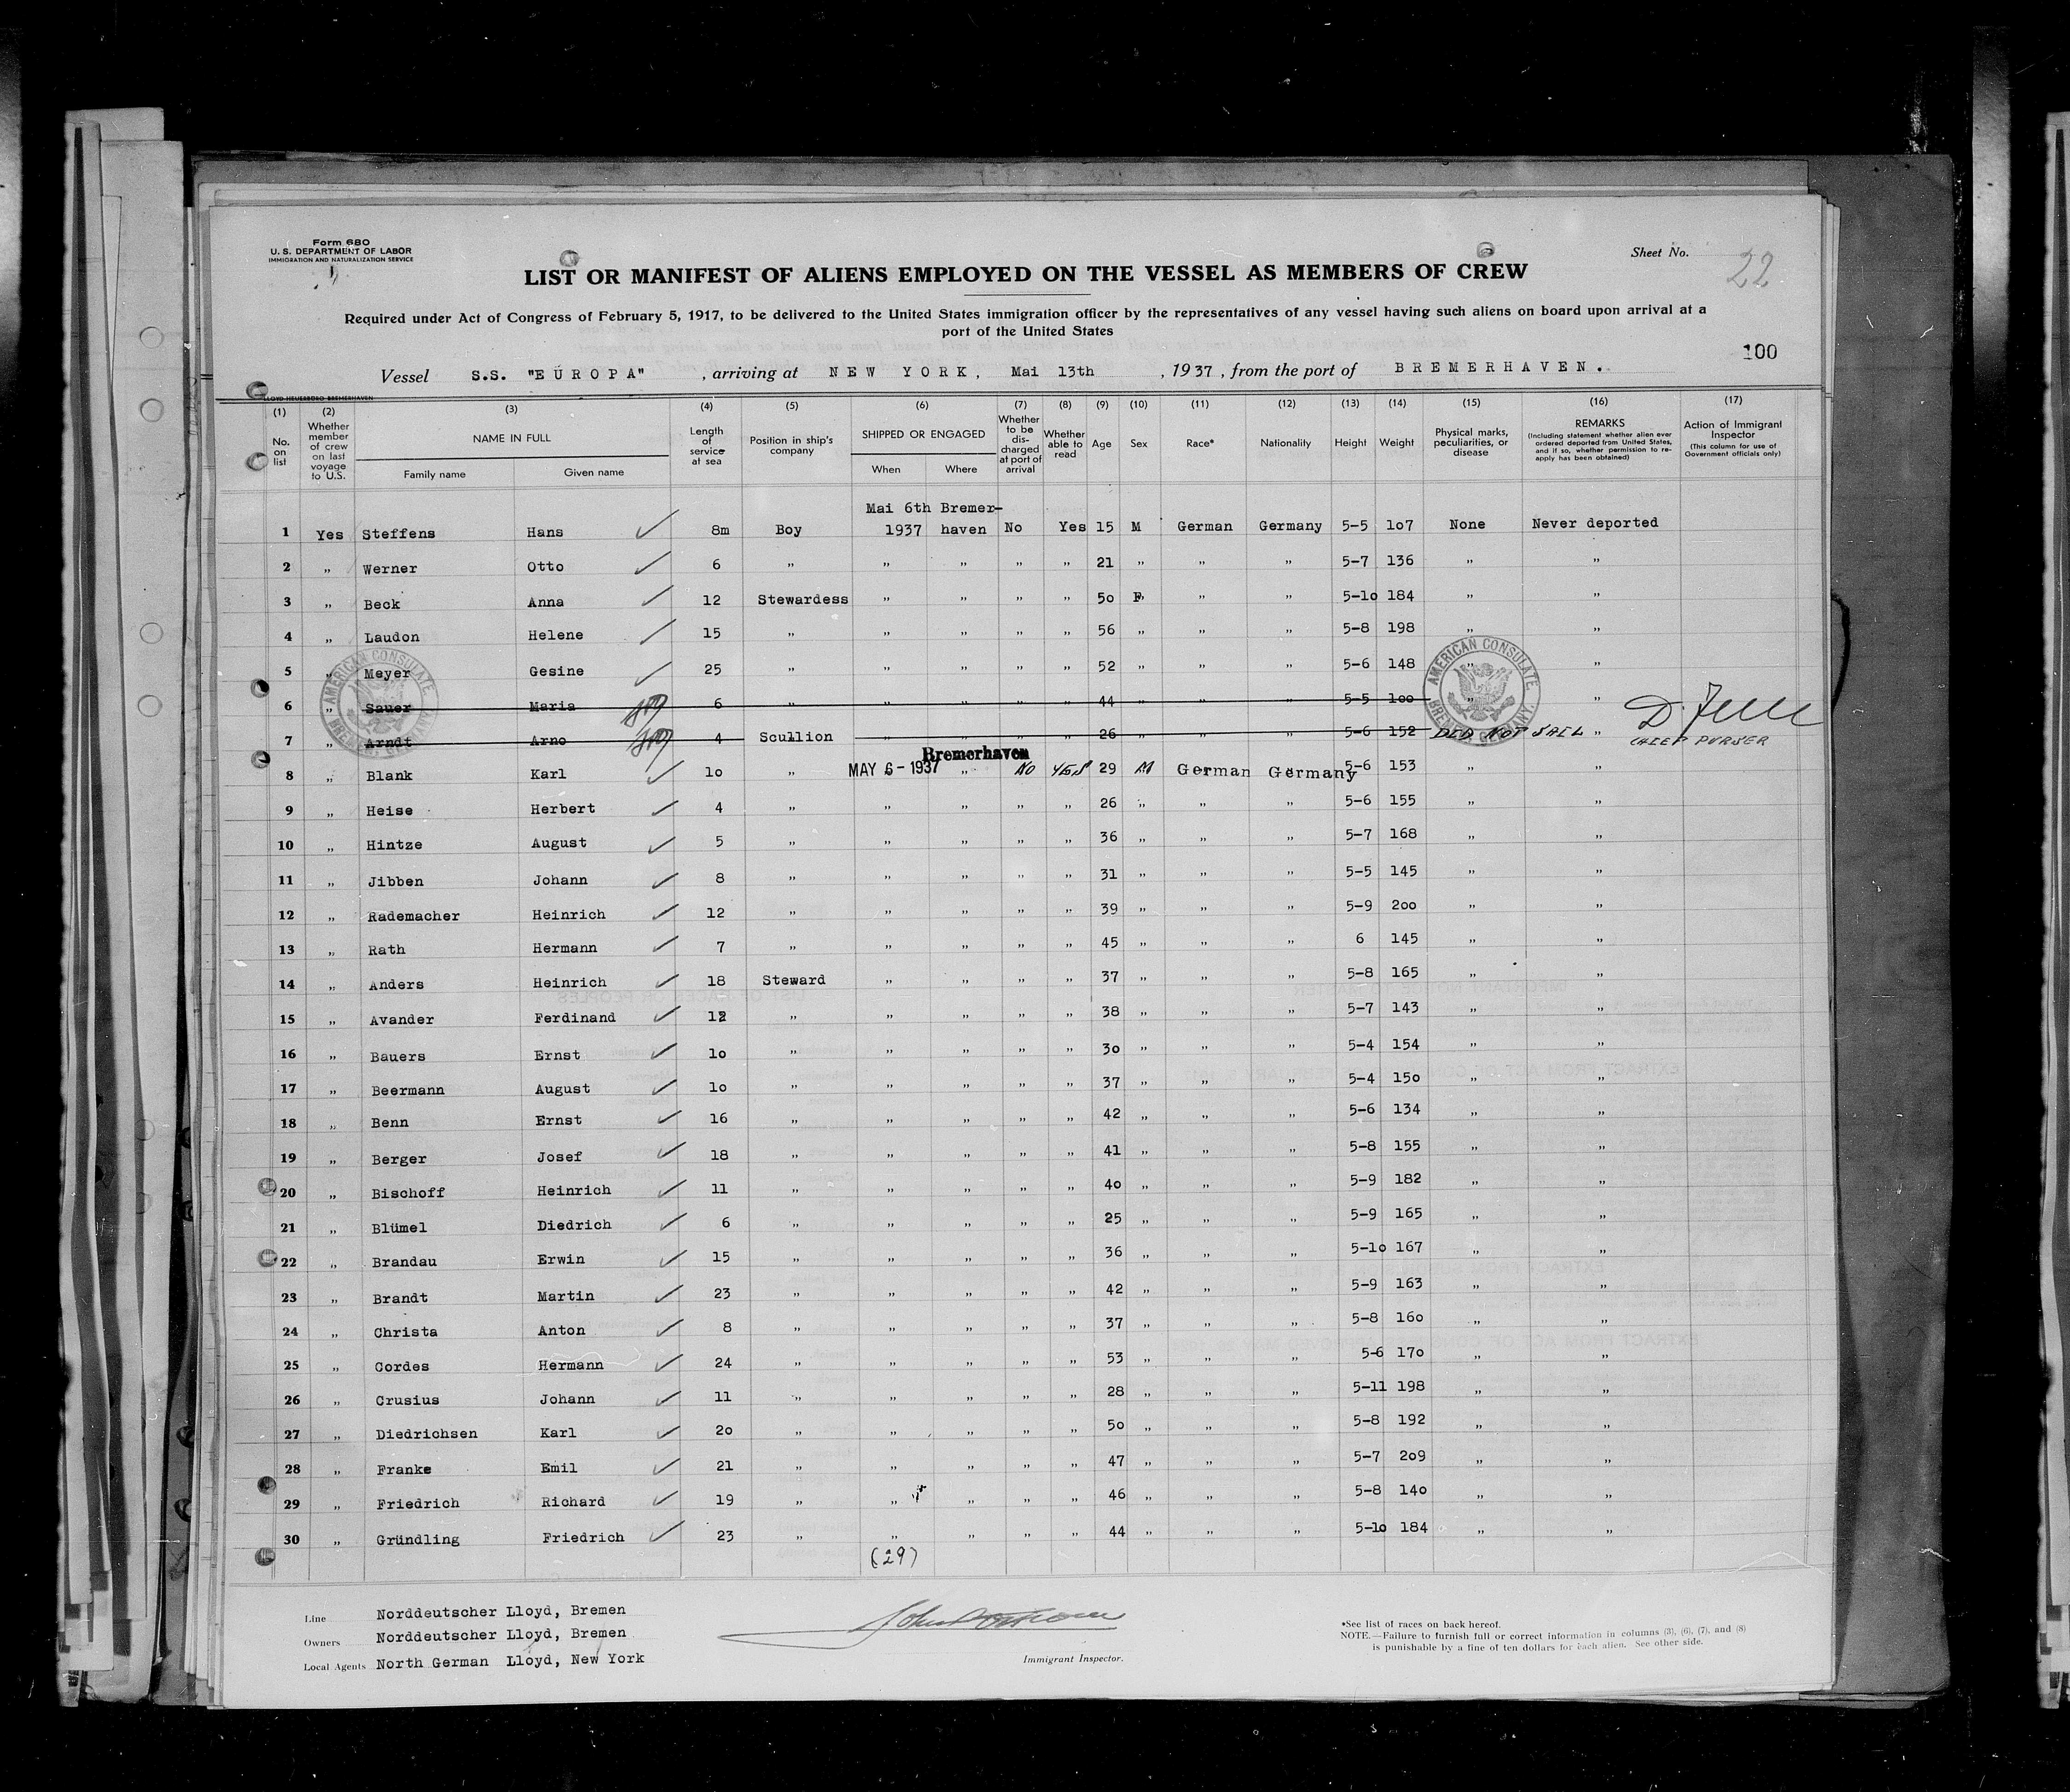 Form 680
U. S. DEPARTMENT OF LABOR
IMMIGRATION AND NATURALIZATION SERVICE
Sheet No. 22
LIST OR MANIFEST OF ALIENS EMPLOYED ON THE VESSEL AS MEMBERS OF CREW
Required under Act of Congress of February 5, 1917, to be delivered to the United States immigration officer by the representatives of any vessel having such aliens on board upon arrival at a
port of the United States
100
Vessel S.S. "EUROPA" , arriving at NEW YORK, Mai 13th , 1937 , from the port of BREMERHAVEN.
LLOYD-HEUERBÜRO BREMERHAVEN
(1) (2) (3) (4) (5) (6) (7) (8) (9) (10) (11) (12) (13) (14) (15) (16) (17)
No. on list
Whether member of crew on last voyage to U.S.
NAME IN FULL
Family name Given name
Length of service at sea
Position in ship's company
SHIPPED OR ENGAGED
When Where
Whether to be discharged at port of arrival
Whether able to read
Age
Sex
Race*
Nationality
Height
Weight
Physical marks, peculiarities, or disease
REMARKS
(Including statement whether alien ever ordered deported from United States, and if so, whether permission to re-apply has been obtained)
Action of Immigrant Inspector
(This column for use of Government officials only)
Mai 6th Bremer-
1 Yes Steffens Hans ✓ 8m Boy 1937 haven No Yes 15 M German Germany 5-5 107 None Never deported
2 " Werner Otto ✓ 6 " " " " " 21 " " " 5-7 136 " "
3 " Beck Anna ✓ 12 Stewardess " " " " 50 F " " 5-10 184 " "
4 " Laudon Helene ✓ 15 " " " " " 56 " " " 5-8 198 " "
5 " Meyer Gesine ✓ 25 " " " " " 52 " " " 5-6 148 " "
6 " Sauer Maria 6 " " " " " 44 " " " 5-5 100 " "
7 " Arndt Arno 4 Scullion " " " " 26 " " " 5-6 152 DID NOT SAIL "
CHIEF PURSER
AMERICAN CONSULATE BREMEN, GERMANY.
AMERICAN CONSULATE BREMEN, GERMANY.
Bremerhaven
8 " Blank Karl ✓ 10 " MAY 6-1937 " No YES 29 M German Germany 5-6 153 " "
9 " Heise Herbert ✓ 4 " " " " " 26 " " " 5-6 155 " "
10 " Hintze August ✓ 5 " " " " " 36 " " " 5-7 168 " "
11 " Jibben Johann ✓ 8 " " " " " 31 " " " 5-5 145 " "
12 " Rademacher Heinrich ✓ 12 " " " " " 39 " " " 5-9 200 " "
13 " Rath Hermann ✓ 7 " " " " " 45 " " " 6 145 " "
14 " Anders Heinrich ✓ 18 Steward " " " " 37 " " " 5-8 165 " "
15 " Avander Ferdinand ✓ 12 " " " " " 38 " " " 5-7 143 " "
16 " Bauers Ernst ✓ 10 " " " " " 30 " " " 5-4 154 " "
17 " Beermann August ✓ 10 " " " " " 37 " " " 5-4 150 " "
18 " Benn Ernst ✓ 16 " " " " " 42 " " " 5-6 134 " "
19 " Berger Josef ✓ 18 " " " " " 41 " " " 5-8 155 " "
20 " Bischoff Heinrich ✓ 11 " " " " " 40 " " " 5-9 182 " "
21 " Blümel Diedrich ✓ 6 " " " " " 25 " " " 5-9 165 " "
22 " Brandau Erwin ✓ 15 " " " " " 36 " " " 5-10 167 " "
23 " Brandt Martin ✓ 23 " " " " " 42 " " " 5-9 163 " "
24 " Christa Anton ✓ 8 " " " " " 37 " " " 5-8 160 " "
25 " Cordes Hermann ✓ 24 " " " " " 53 " " " 5-6 170 " "
26 " Crusius Johann ✓ 11 " " " " " 28 " " " 5-11 198 " "
27 " Diedrichsen Karl ✓ 20 " " " " " 50 " " " 5-8 192 " "
28 " Franke Emil ✓ 21 " " " " " 47 " " " 5-7 209 " "
29 " Friedrich Richard ✓ 19 " " " " " 46 " " " 5-8 140 " "
30 " Gründling Friedrich ✓ 23 " " " " " 44 " " " 5-10 184 " "
(29)
Line Norddeutscher Lloyd, Bremen
Owners Norddeutscher Lloyd, Bremen
Local Agents North German Lloyd, New York
Immigrant Inspector.
*See list of races on back hereof.
NOTE.—Failure to furnish full or correct information in columns (3), (6), (7), and (8)
is punishable by a fine of ten dollars for each alien. See other side.